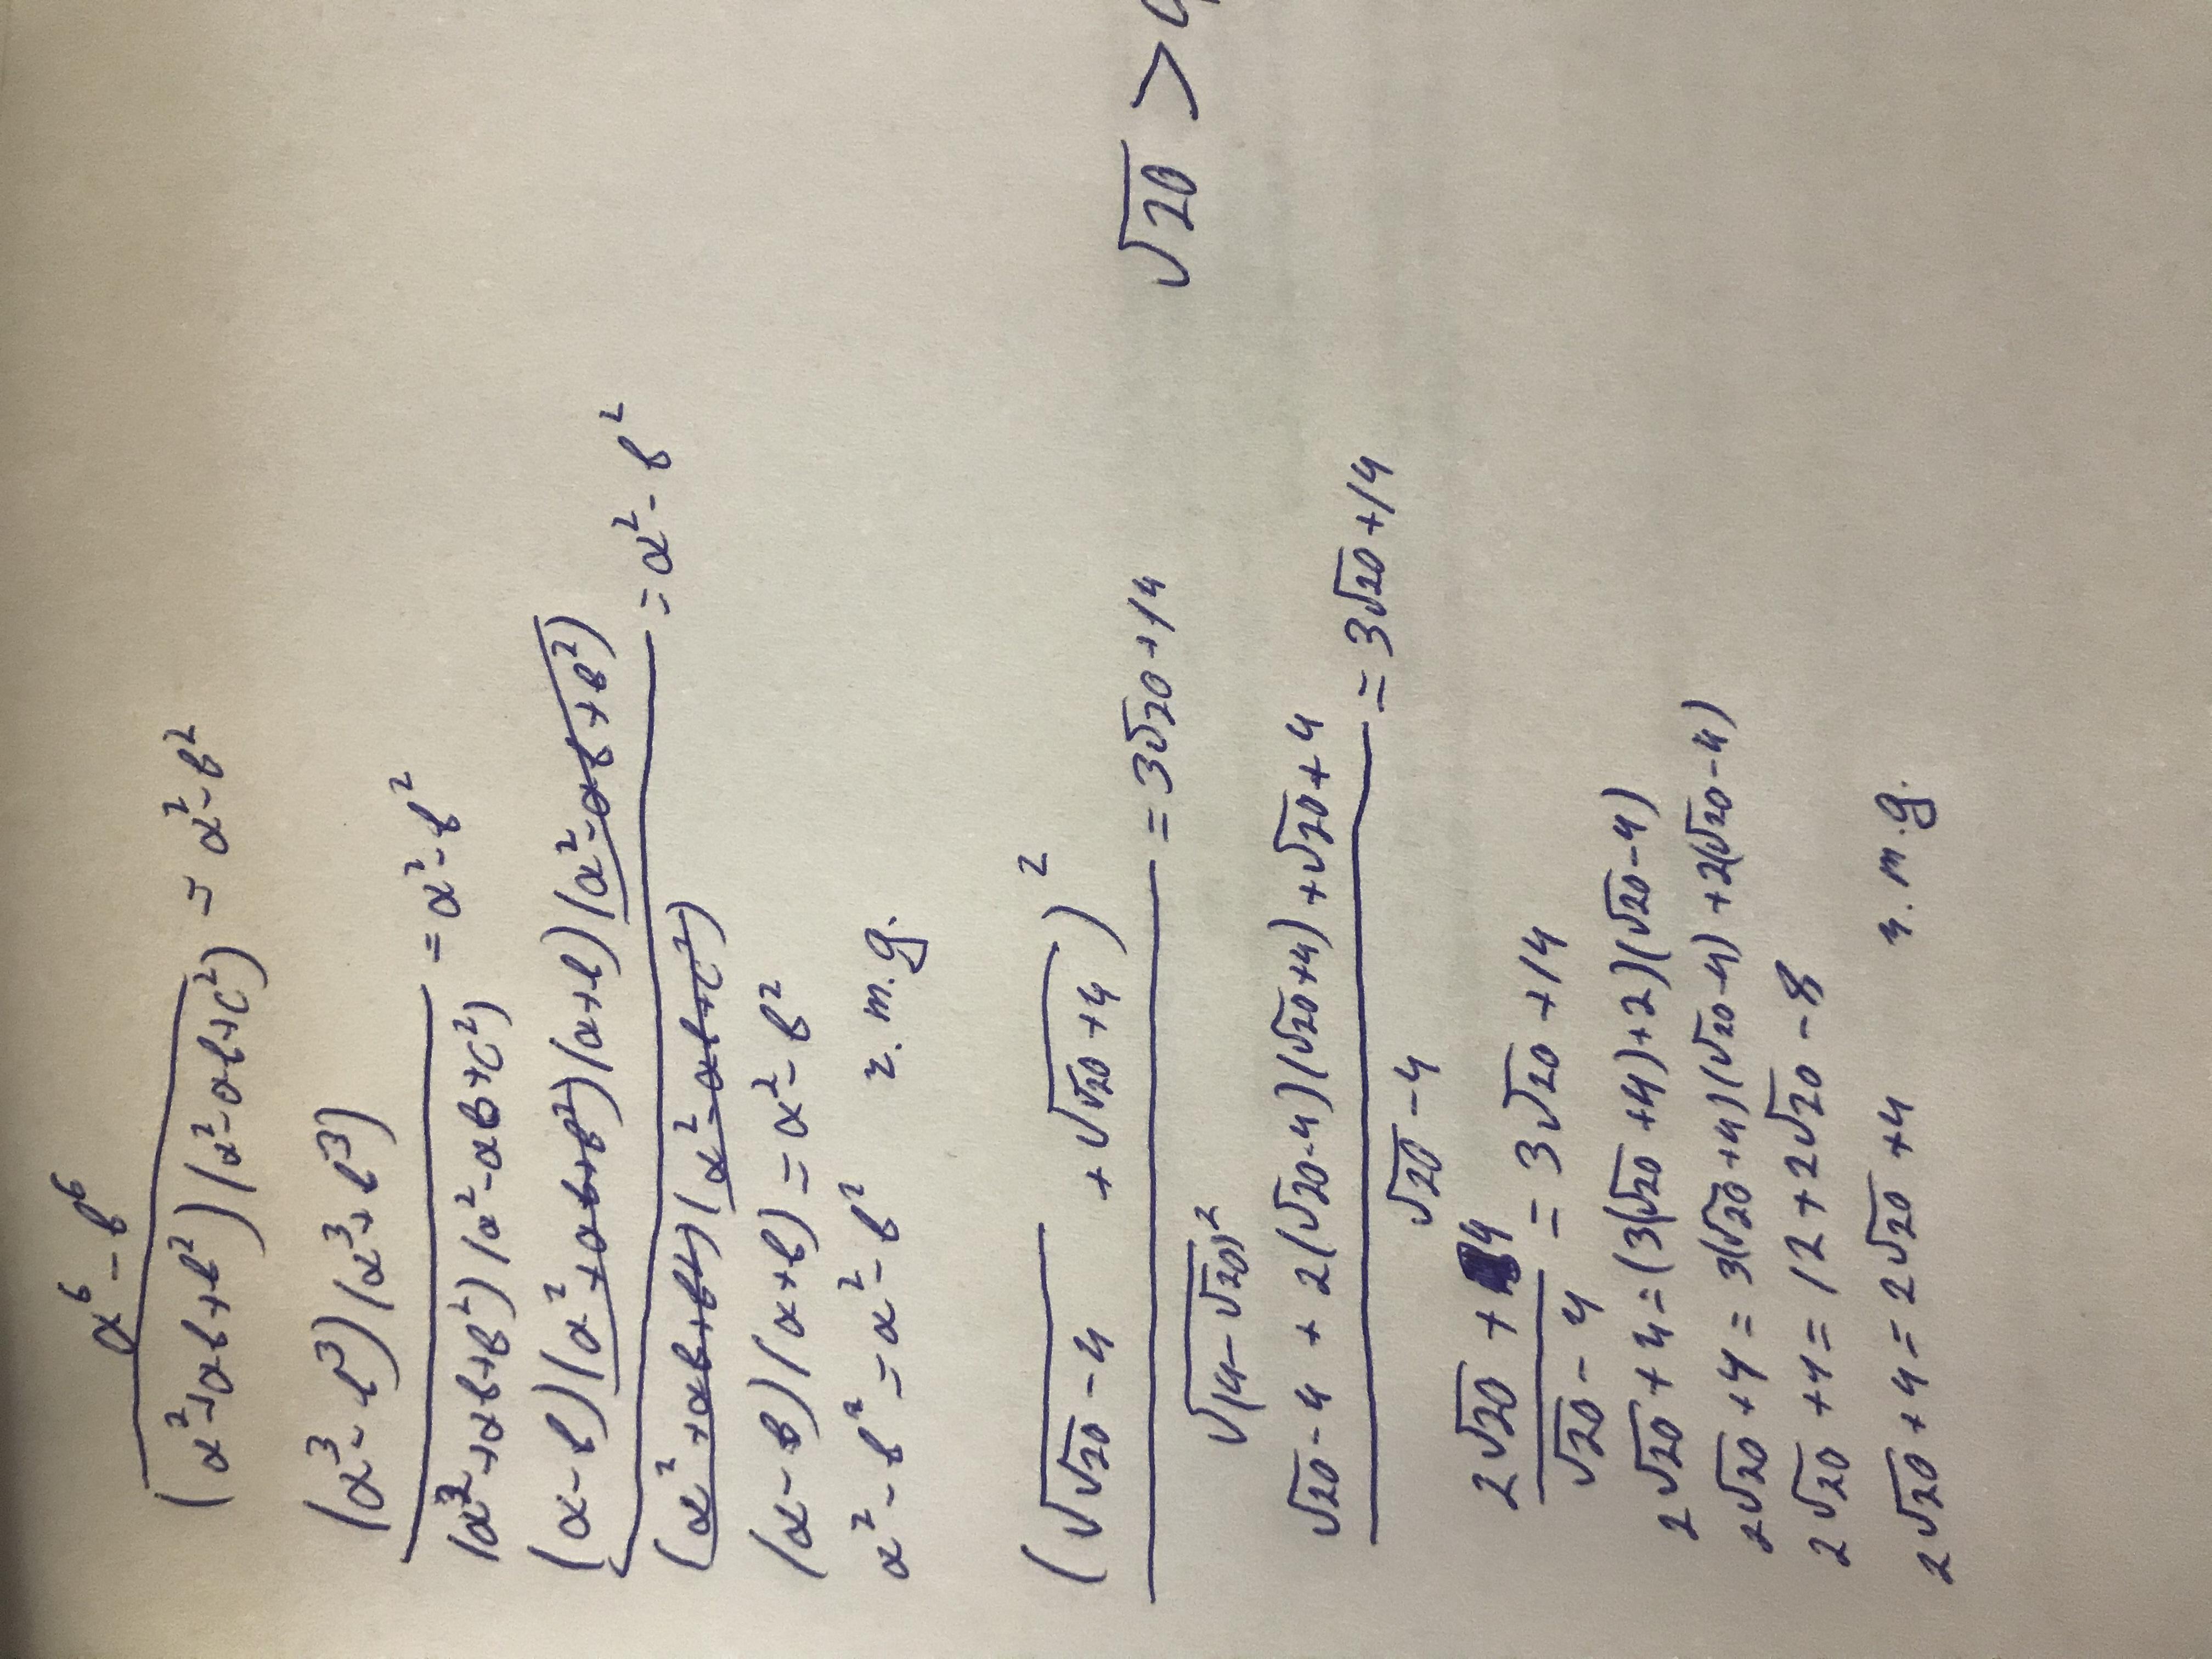 a⁶ - b⁶
(a² + ab + b²)(a² - ab + c²) = a² - b²
(a³ - b³)(a³ + b³)
(a² + ab + b²)(a² - ab + c²) = a² - b²
(a - b)(a² + ab + b²)(a + b)(a² - ab + b²)
(a² + ab + b²)(a² - ab + c²) = a² - b²
(a - b)(a + b) = a² - b²
a² - b² = a² - b²
ч. т. д.
(√(√20 - 4) + √(√20 + 4))²
= 3√20 + 14
√(4 - √20)²
√20 > 4
√20 - 4 + 2(√20 - 4)(√20 + 4) + √20 + 4
= 3√20 + 14
√20 - 4
2√20 + 4
= 3√20 + 14
√20 - 4
2√20 + 4 = (3(√20 + 4) + 2)(√20 - 4)
2√20 + 4 = 3(√20 + 4)(√20 - 4) + 2(√20 - 4)
2√20 + 4 = 12 + 2√20 - 8
2√20 + 4 = 2√20 + 4
ч. т. д.